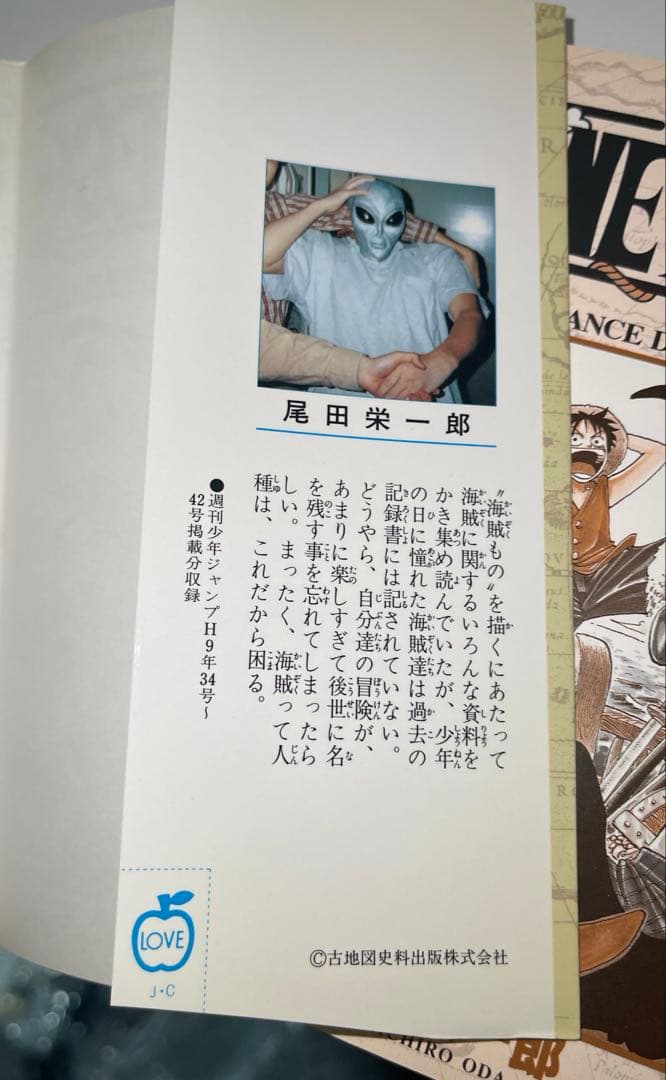 尾田栄一郎
"海賊もの"を描くにあたって
海賊に関するいろんな資料を
かき集め読んでいたが、少年
の日に憧れた海賊達は過去の
記録書には記されていない。
どうやら、自分達の冒険が、
あまりに楽しすぎて後世に名
を残す事を忘れてしまったら
しい。まったく、海賊って人
種は、これだから困る。
●週刊少年ジャンプH9年34号〜
42号掲載分収録
LOVE
J・C
©古地図史料出版株式会社
NE
ANCE D
CHIRO ODA
郎